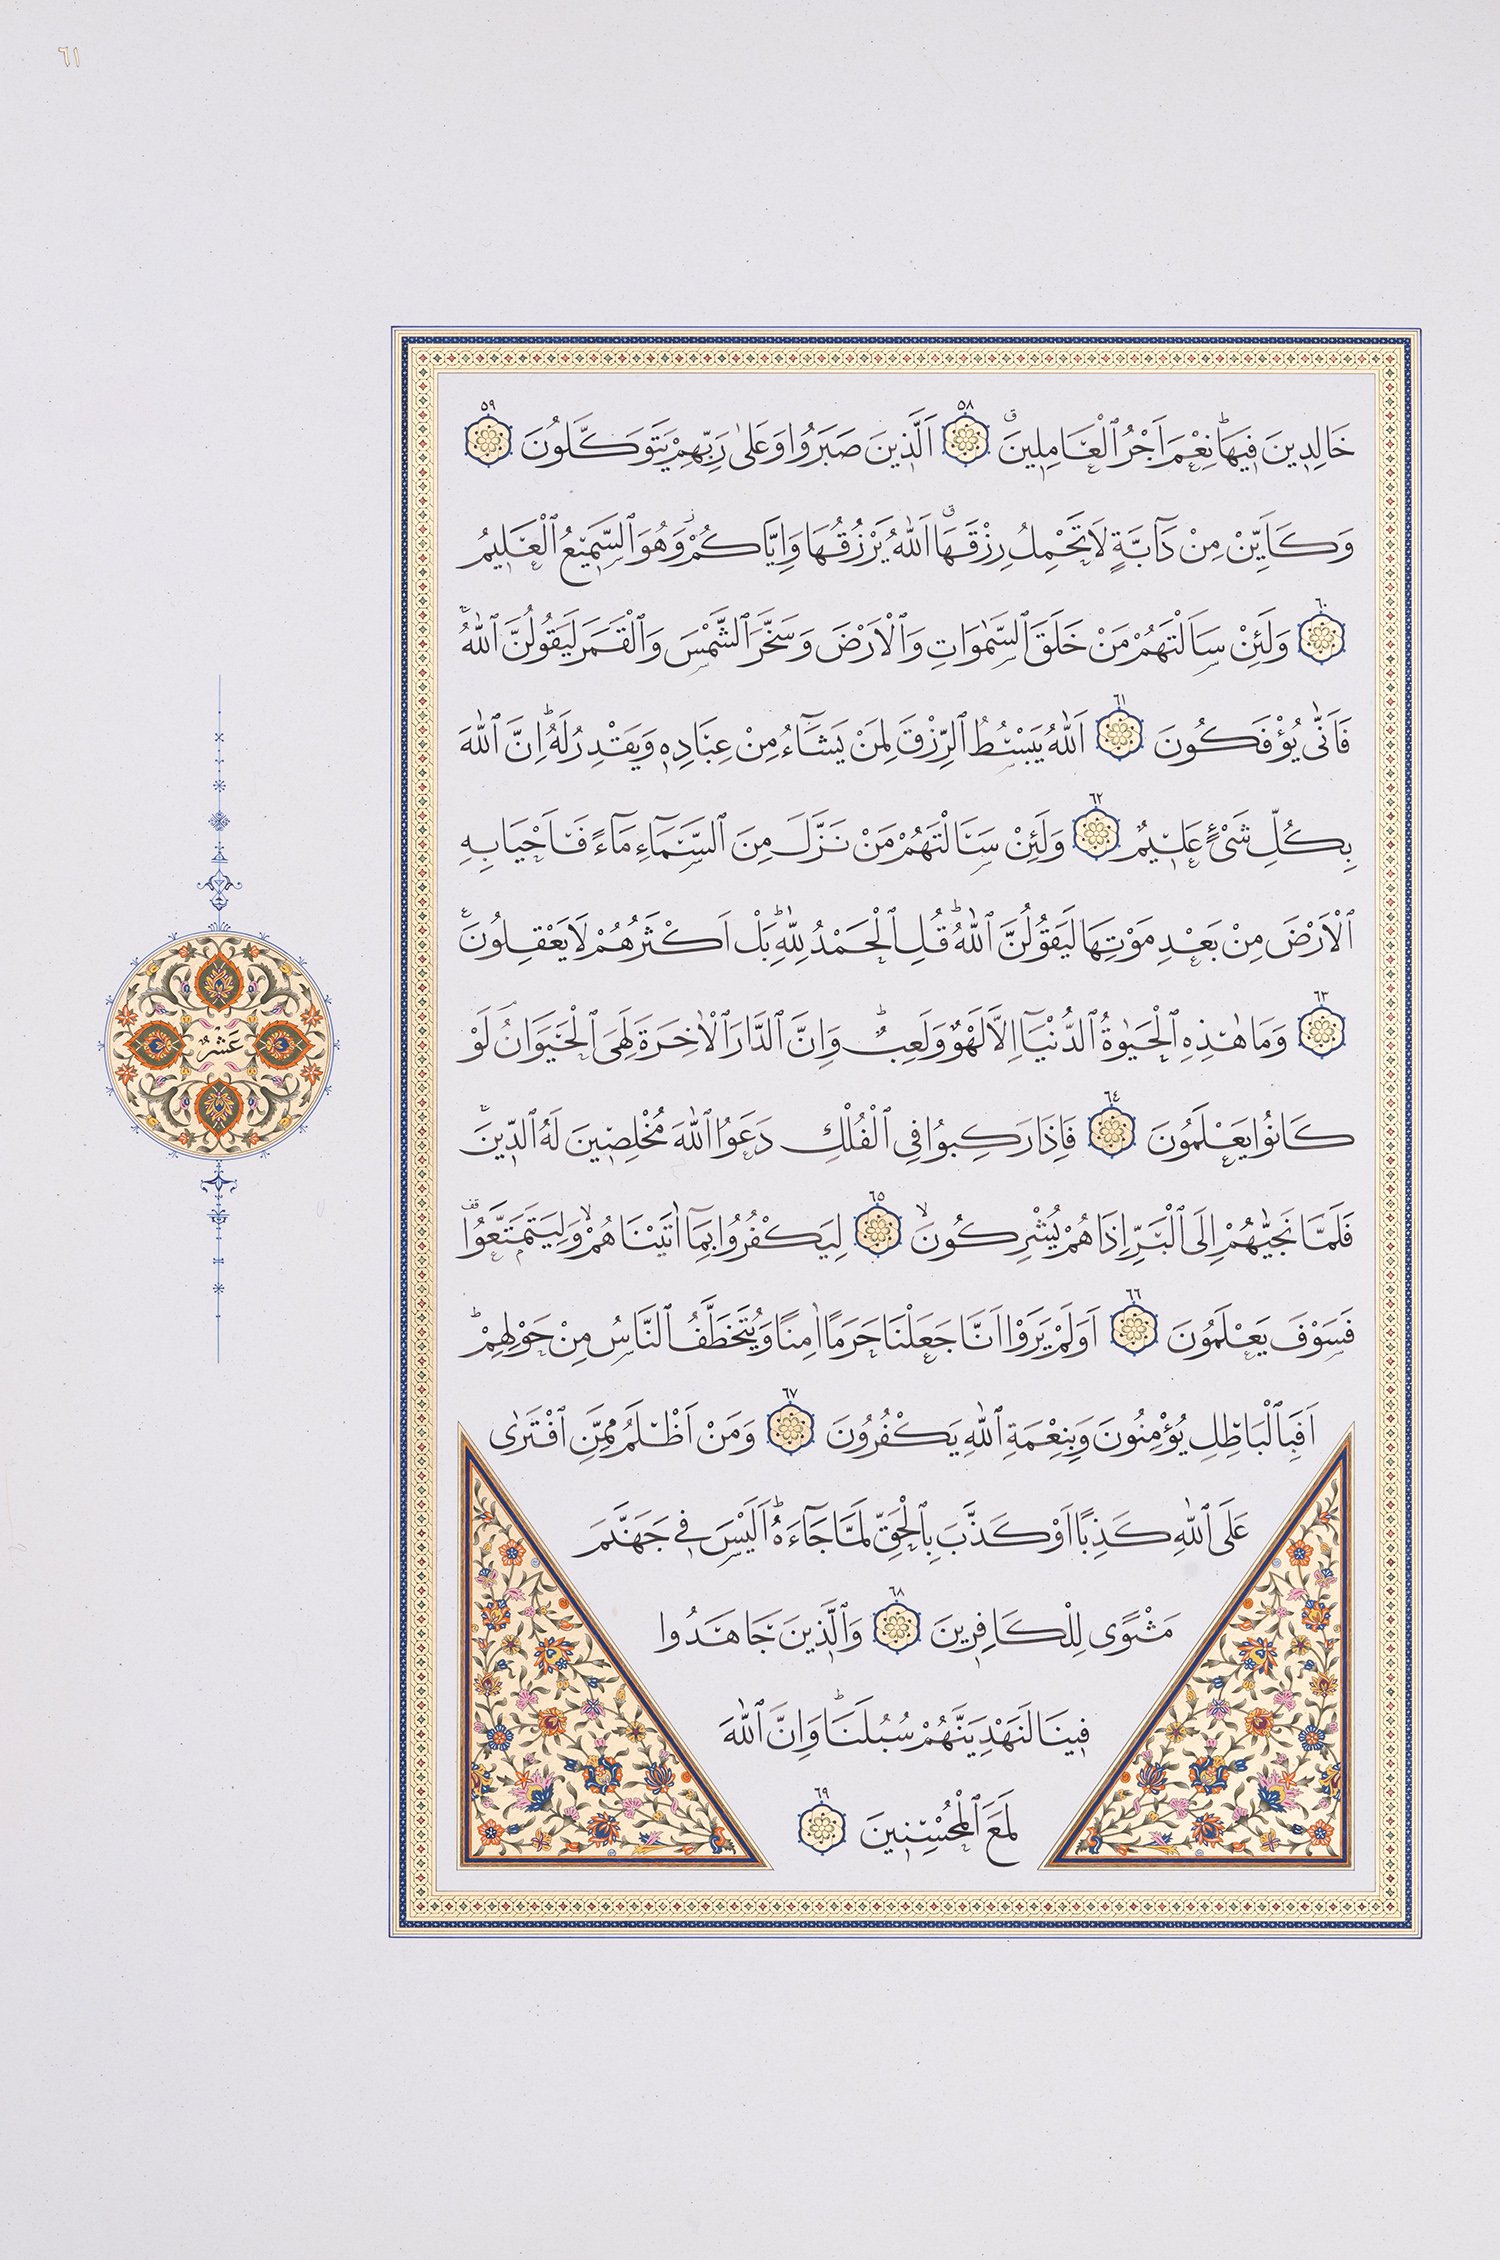 ٦١
خَالِدِينَ فِيهَاۜ نِعْمَ اَجْرُ الْعَامِلِينَۗ ٥٨ اَلَّذِينَ صَبَرُوا وَعَلٰى رَبِّهِمْ يَتَوَكَّلُونَ ٥٩
وَكَاَيِّنْ مِنْ دَٓابَّةٍ لَا تَحْمِلُ رِزْقَهَاۗ اَللّٰهُ يَرْزُقُهَا وَاِيَّاكُمْۘ وَهُوَ السَّمِيعُ الْعَلِيمُ
٦٠ وَلَئِنْ سَاَلْتَهُمْ مَنْ خَلَقَ السَّمٰوَاتِ وَالْاَرْضَ وَسَخَّرَ الشَّمْسَ وَالْقَمَرَ لَيَقُولُنَّ اللّٰهُۚ
فَاَنّٰى يُؤْفَكُونَ ٦١ اَللّٰهُ يَبْسُطُ الرِّزْقَ لِمَنْ يَشَٓاءُ مِنْ عِبَادِهٖ وَيَقْدِرُ لَهُۜ اِنَّ اللّٰهَ
بِكُلِّ شَيْءٍ عَلِيمٌ ٦٢ وَلَئِنْ سَاَلْتَهُمْ مَنْ نَزَّلَ مِنَ السَّمَٓاءِ مَٓاءً فَاَحْيَا بِهِ
الْاَرْضَ مِنْ بَعْدِ مَوْتِهَا لَيَقُولُنَّ اللّٰهُۜ قُلِ الْحَمْدُ لِلّٰهِۜ بَلْ اَكْثَرُهُمْ لَا يَعْقِلُونَ
٦٣ وَمَا هٰذِهِ الْحَيٰوةُ الدُّنْيَٓا اِلَّا لَهْوٌ وَلَعِبٌۜ وَاِنَّ الدَّارَ الْاٰخِرَةَ لَهِيَ الْحَيَوَانُۢ لَوْ
عَشْرٌ
كَانُوا يَعْلَمُونَ ٦٤ فَاِذَا رَكِبُوا فِي الْفُلْكِ دَعَوُا اللّٰهَ مُخْلِصِينَ لَهُ الدِّينَۚ
فَلَمَّا نَجّٰيهُمْ اِلَى الْبَرِّ اِذَا هُمْ يُشْرِكُونَۙ ٦٥ لِيَكْفُرُوا بِمَٓا اٰتَيْنَاهُمْۙ وَلِيَتَمَتَّعُوا
فَسَوْفَ يَعْلَمُونَ ٦٦ اَوَلَمْ يَرَوْا اَنَّا جَعَلْنَا حَرَمًا اٰمِنًا وَيُتَخَطَّفُ النَّاسُ مِنْ حَوْلِهِمْۜ
اَفَبِالْبَاطِلِ يُؤْمِنُونَ وَبِنِعْمَةِ اللّٰهِ يَكْفُرُونَ ٦٧ وَمَنْ اَظْلَمُ مِمَّنِ افْتَرٰى
عَلَى اللّٰهِ كَذِبًا اَوْ كَذَّبَ بِالْحَقِّ لَمَّا جَٓاءَهُۜ اَلَيْسَ فِي جَهَنَّمَ
مَثْوًى لِلْكَافِرِينَ ٦٨ وَالَّذِينَ جَاهَدُوا
فِينَا لَنَهْدِيَنَّهُمْ سُبُلَنَاۜ وَاِنَّ اللّٰهَ
لَمَعَ الْمُحْسِنِينَ ٦٩